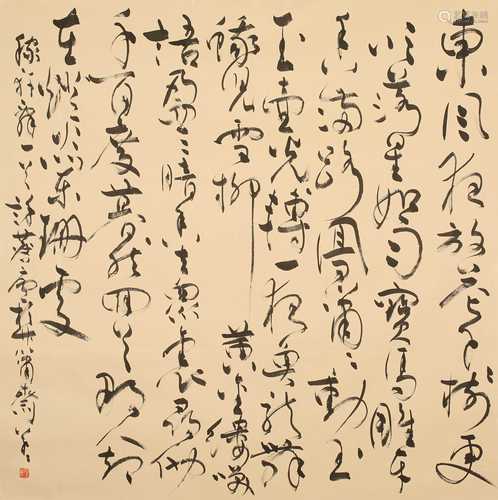 東風夜放花千樹更
吹落星如雨寶馬雕車
香滿路鳳簫聲動
玉壺光轉一夜魚龍舞
蛾兒雪柳黃金縷笑
語盈盈暗香去眾裏尋他
千百度驀然回首那人却
在燈火闌珊處
稼軒詞一首